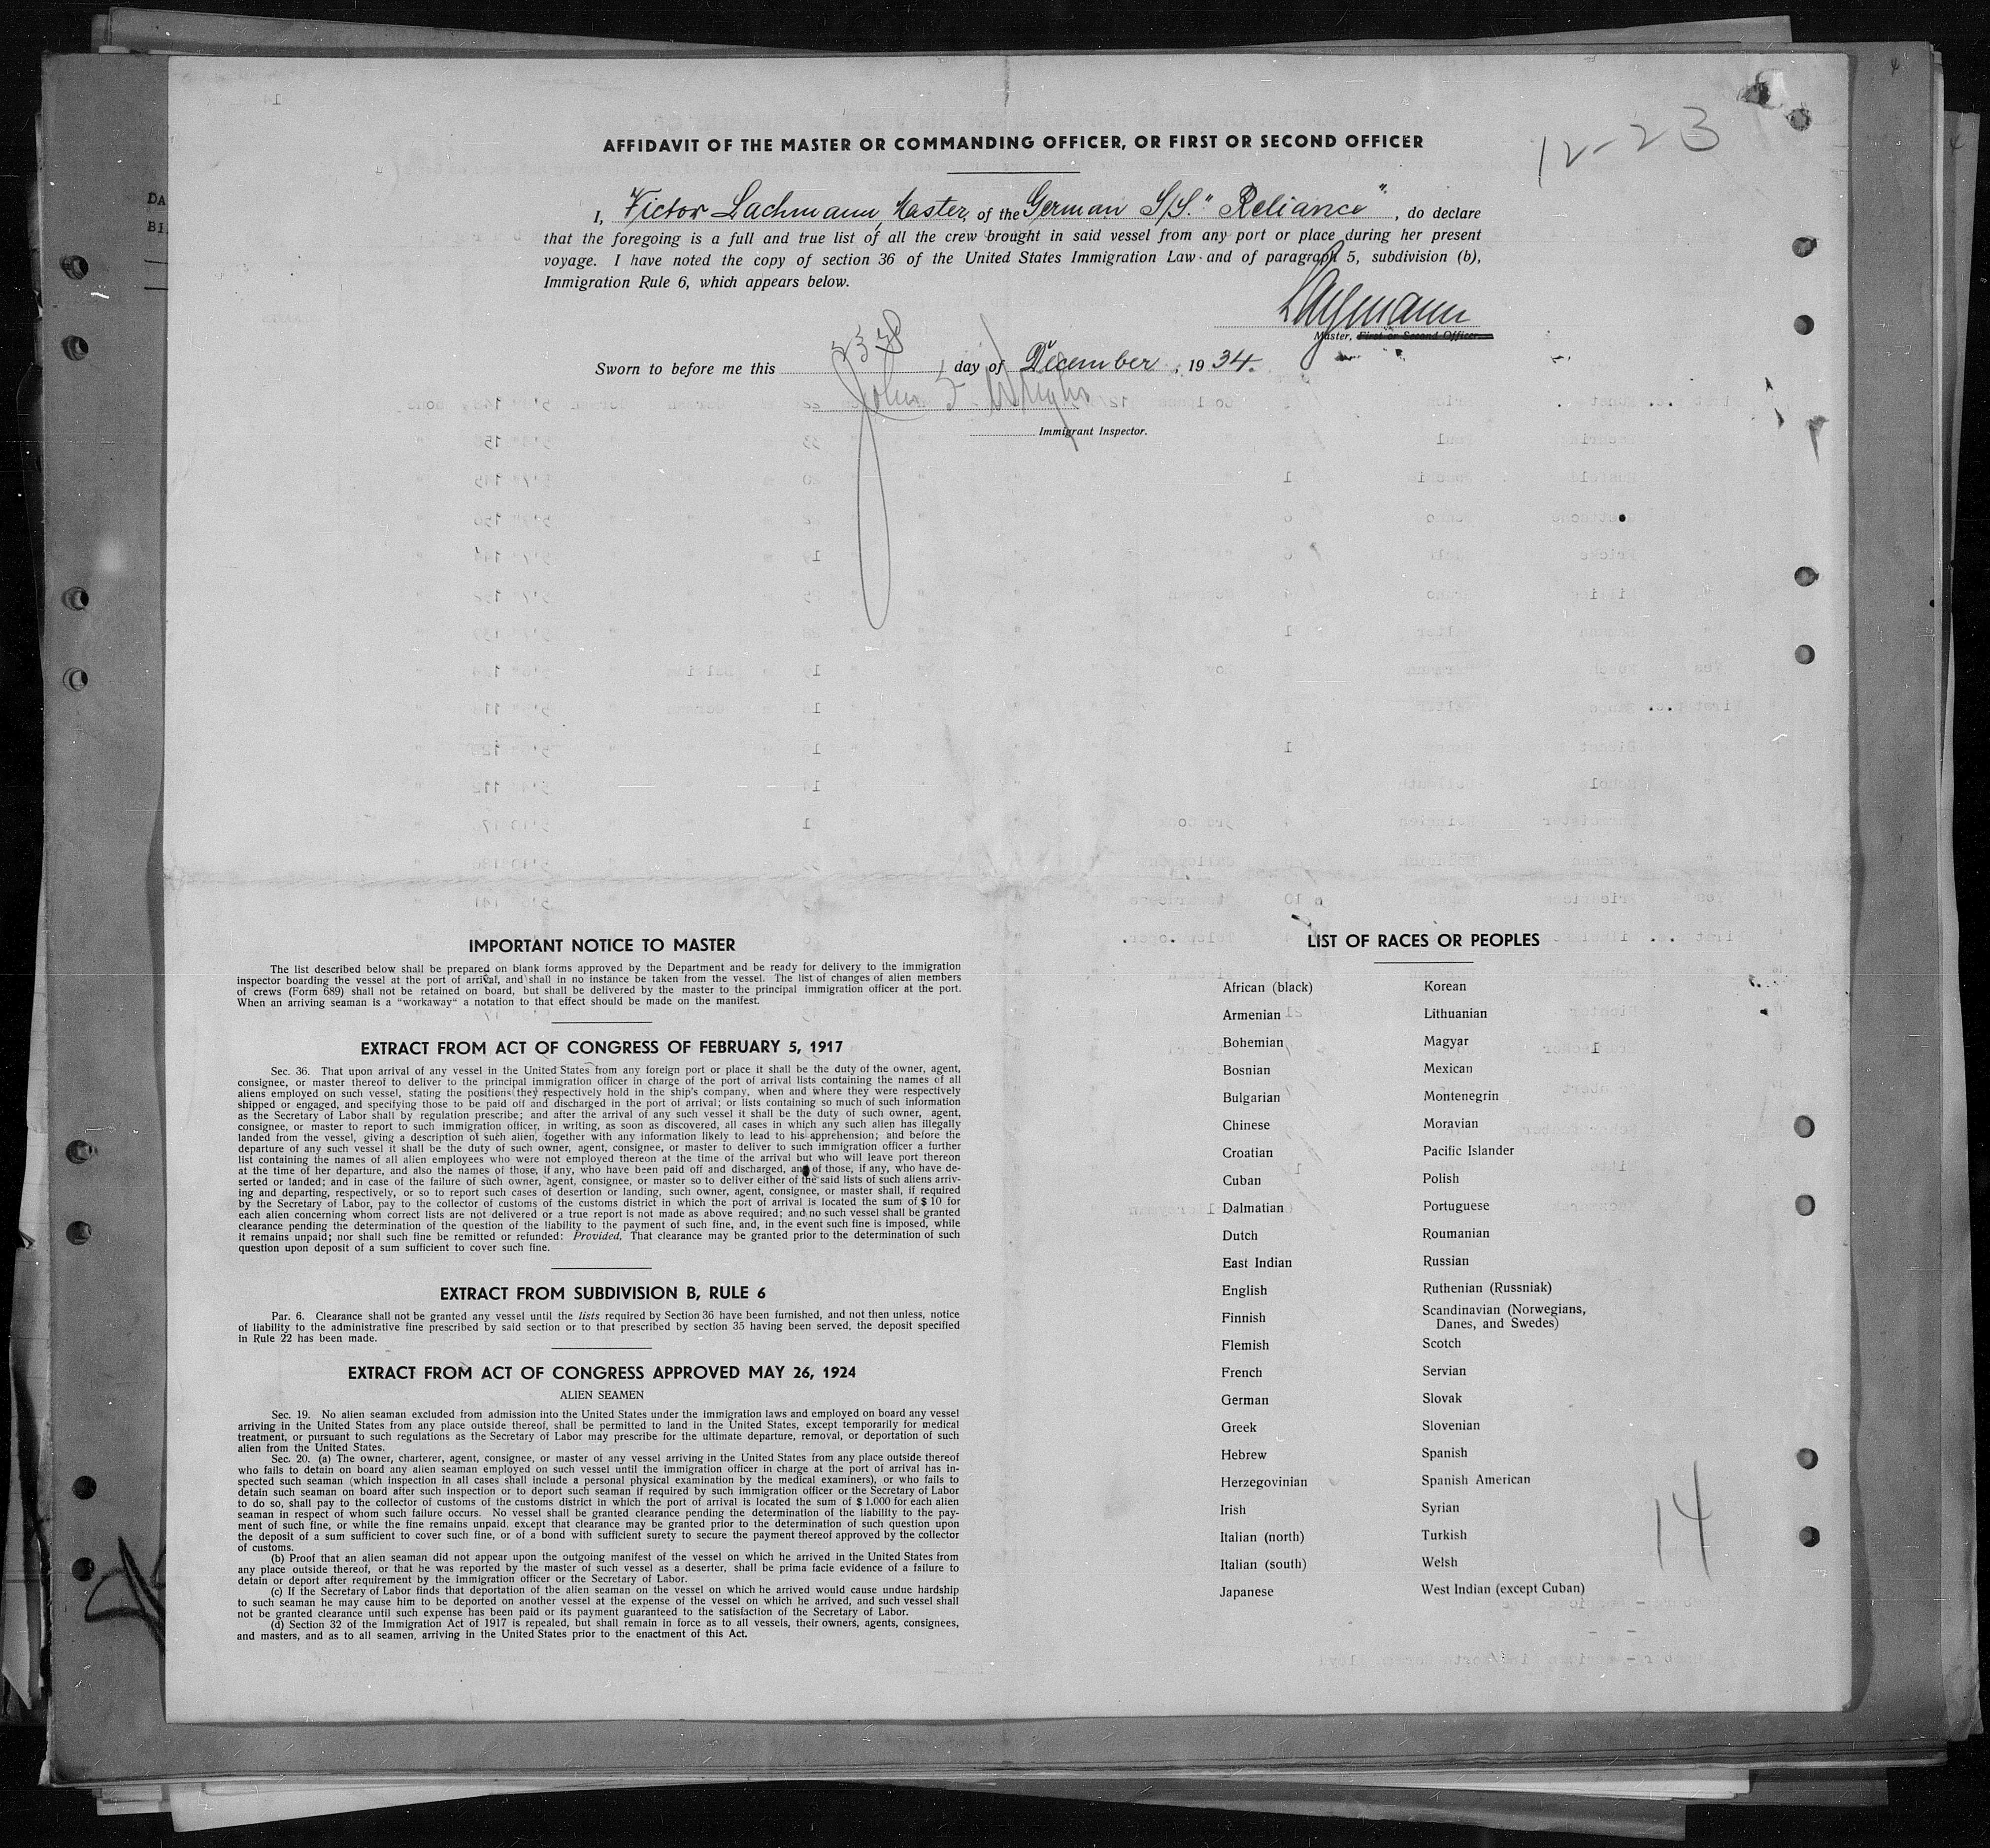 12-23
AFFIDAVIT OF THE MASTER OR COMMANDING OFFICER, OR FIRST OR SECOND OFFICER
I, Victor Lachmann, Master, of the German S/S. "Reliance", do declare
that the foregoing is a full and true list of all the crew brought in said vessel from any port or place during her present
voyage. I have noted the copy of section 36 of the United States Immigration Law and of paragraph 5, subdivision (b),
Immigration Rule 6, which appears below.
Lachmann
Master, First or Second Officer.
Sworn to before me this 23rd day of December, 1934.
John
Immigrant Inspector.
IMPORTANT NOTICE TO MASTER
The list described below shall be prepared on blank forms approved by the Department and be ready for delivery to the immigration
inspector boarding the vessel at the port of arrival, and shall in no instance be taken from the vessel. The list of changes of alien members
of crews (Form 689) shall not be retained on board, but shall be delivered by the master to the principal immigration officer at the port.
When an arriving seaman is a "workaway" a notation to that effect should be made on the manifest.
EXTRACT FROM ACT OF CONGRESS OF FEBRUARY 5, 1917
Sec. 36. That upon arrival of any vessel in the United States from any foreign port or place it shall be the duty of the owner, agent,
consignee, or master thereof to deliver to the principal immigration officer in charge of the port of arrival lists containing the names of all
aliens employed on such vessel, stating the positions they respectively hold in the ship's company, when and where they were respectively
shipped or engaged, and specifying those to be paid off and discharged in the port of arrival; or lists containing so much of such information
as the Secretary of Labor shall by regulation prescribe; and after the arrival of any such vessel it shall be the duty of such owner, agent,
consignee, or master to report to such immigration officer, in writing, as soon as discovered, all cases in which any such alien has illegally
landed from the vessel, giving a description of such alien, together with any information likely to lead to his apprehension; and before the
departure of any such vessel it shall be the duty of such owner, agent, consignee, or master to deliver to such immigration officer a further
list containing the names of all alien employees who were not employed thereon at the time of the arrival but who will leave port thereon
at the time of her departure, and also the names of those, if any, who have been paid off and discharged, and of those, if any, who have de-
serted or landed; and in case of the failure of such owner, agent, consignee, or master so to deliver either of the said lists of such aliens arriv-
ing and departing, respectively, or so to report such cases of desertion or landing, such owner, agent, consignee, or master shall, if required
by the Secretary of Labor, pay to the collector of customs of the customs district in which the port of arrival is located the sum of $ 10 for
each alien concerning whom correct lists are not delivered or a true report is not made as above required; and no such vessel shall be granted
clearance pending the determination of the question of the liability to the payment of such fine, and, in the event such fine is imposed, while
it remains unpaid; nor shall such fine be remitted or refunded: Provided, That clearance may be granted prior to the determination of such
question upon deposit of a sum sufficient to cover such fine.
EXTRACT FROM SUBDIVISION B, RULE 6
Par. 6. Clearance shall not be granted any vessel until the lists required by Section 36 have been furnished, and not then unless, notice
of liability to the administrative fine prescribed by said section or to that prescribed by section 35 having been served, the deposit specified
in Rule 22 has been made.
EXTRACT FROM ACT OF CONGRESS APPROVED MAY 26, 1924
ALIEN SEAMEN
Sec. 19. No alien seaman excluded from admission into the United States under the immigration laws and employed on board any vessel
arriving in the United States from any place outside thereof, shall be permitted to land in the United States, except temporarily for medical
treatment, or pursuant to such regulations as the Secretary of Labor may prescribe for the ultimate departure, removal, or deportation of such
alien from the United States.
Sec. 20. (a) The owner, charterer, agent, consignee, or master of any vessel arriving in the United States from any place outside thereof
who fails to detain on board any alien seaman employed on such vessel until the immigration officer in charge at the port of arrival has in-
spected such seaman (which inspection in all cases shall include a personal physical examination by the medical examiners), or who fails to
detain such seaman on board after such inspection or to deport such seaman if required by such immigration officer or the Secretary of Labor
to do so, shall pay to the collector of customs of the customs district in which the port of arrival is located the sum of $ 1.000 for each alien
seaman in respect of whom such failure occurs. No vessel shall be granted clearance pending the determination of the liability to the pay-
ment of such fine, or while the fine remains unpaid, except that clearance may be granted prior to the determination of such question upon
the deposit of a sum sufficient to cover such fine, or of a bond with sufficient surety to secure the payment thereof approved by the collector
of customs.
(b) Proof that an alien seaman did not appear upon the outgoing manifest of the vessel on which he arrived in the United States from
any place outside thereof, or that he was reported by the master of such vessel as a deserter, shall be prima facie evidence of a failure to
detain or deport after requirement by the immigration officer or the Secretary of Labor.
(c) If the Secretary of Labor finds that deportation of the alien seaman on the vessel on which he arrived would cause undue hardship
to such seaman he may cause him to be deported on another vessel at the expense of the vessel on which he arrived, and such vessel shall
not be granted clearance until such expense has been paid or its payment guaranteed to the satisfaction of the Secretary of Labor.
(d) Section 32 of the Immigration Act of 1917 is repealed, but shall remain in force as to all vessels, their owners, agents, consignees,
and masters, and as to all seamen, arriving in the United States prior to the enactment of this Act.
LIST OF RACES OR PEOPLES
African (black)
Armenian
Bohemian
Bosnian
Bulgarian
Chinese
Croatian
Cuban
Dalmatian
Dutch
East Indian
English
Finnish
Flemish
French
German
Greek
Hebrew
Herzegovinian
Irish
Italian (north)
Italian (south)
Japanese
Korean
Lithuanian
Magyar
Mexican
Montenegrin
Moravian
Pacific Islander
Polish
Portuguese
Roumanian
Russian
Ruthenian (Russniak)
Scandinavian (Norwegians,
Danes, and Swedes)
Scotch
Servian
Slovak
Slovenian
Spanish
Spanish American
Syrian
Turkish
Welsh
West Indian (except Cuban)
14